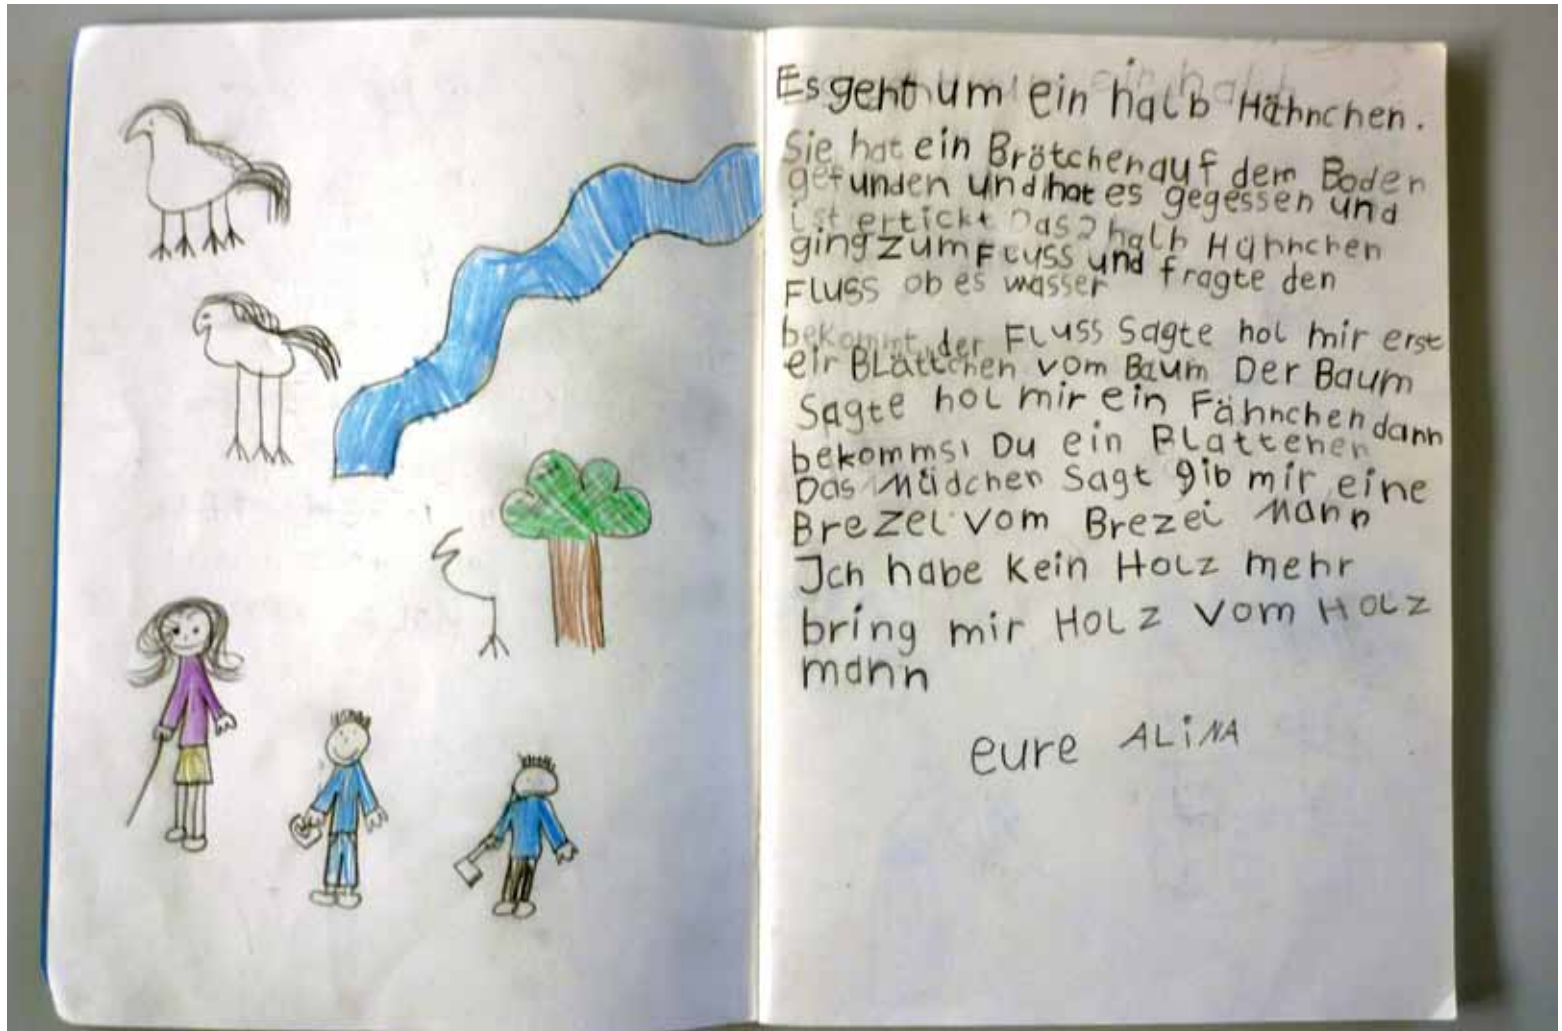 Es geht um ein halb Hähnchen.
Sie hat ein Brötchen auf dem Boden
gefunden und hat es gegessen und
ist ertickt Das 2 halb Hühnchen
ging zum Fluss und fragte den
Fluss ob es wasser
bekommt der Fluss Sagte hol mir erst
ein Blättchen vom Baum Der Baum
Sagte hol mir ein Fähnchen dann
bekommst Du ein Blattchen
Das Mädchen Sagt gib mir eine
Brezel vom Brezel Mann
Ich habe kein Holz mehr
bring mir Holz vom Holz
mann
eure ALiNA